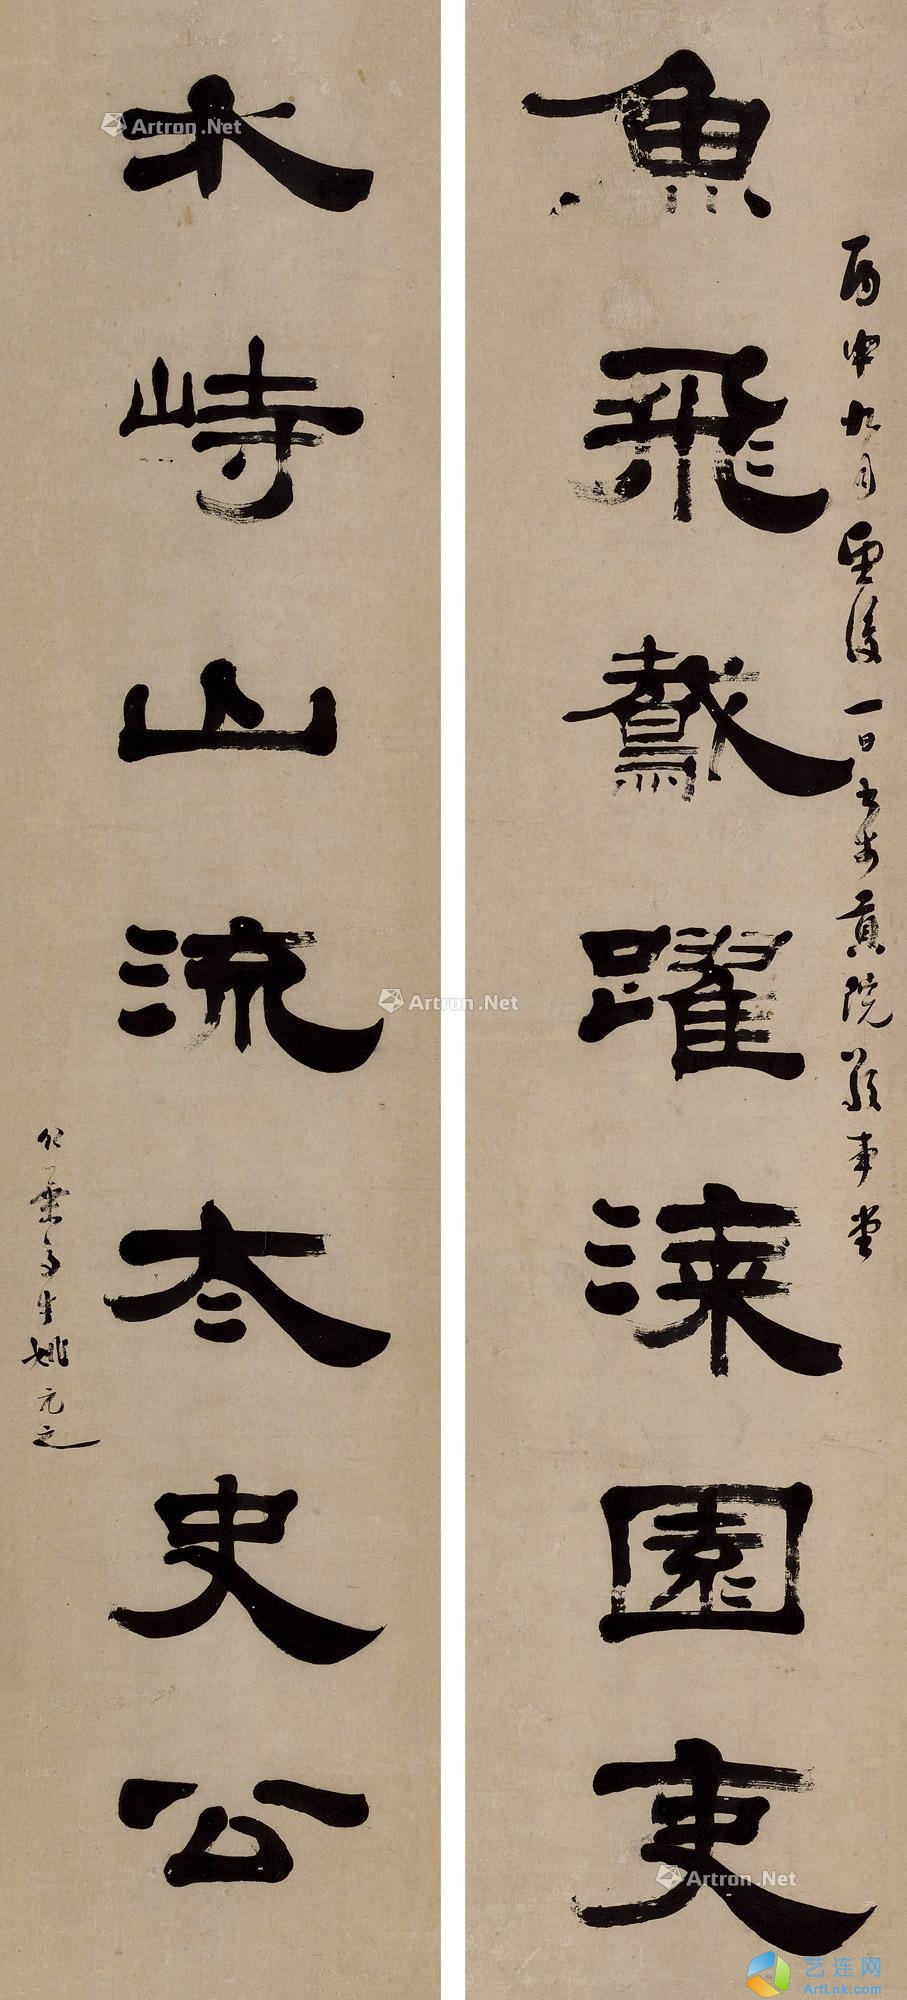 魚飛鷰躍漆園吏
丙申九月望後一日書於貢院
水峙山流太史公
姚元之
Artron.Net
Artron.Net
Artron.Net
艺连网
ArtLnk.com